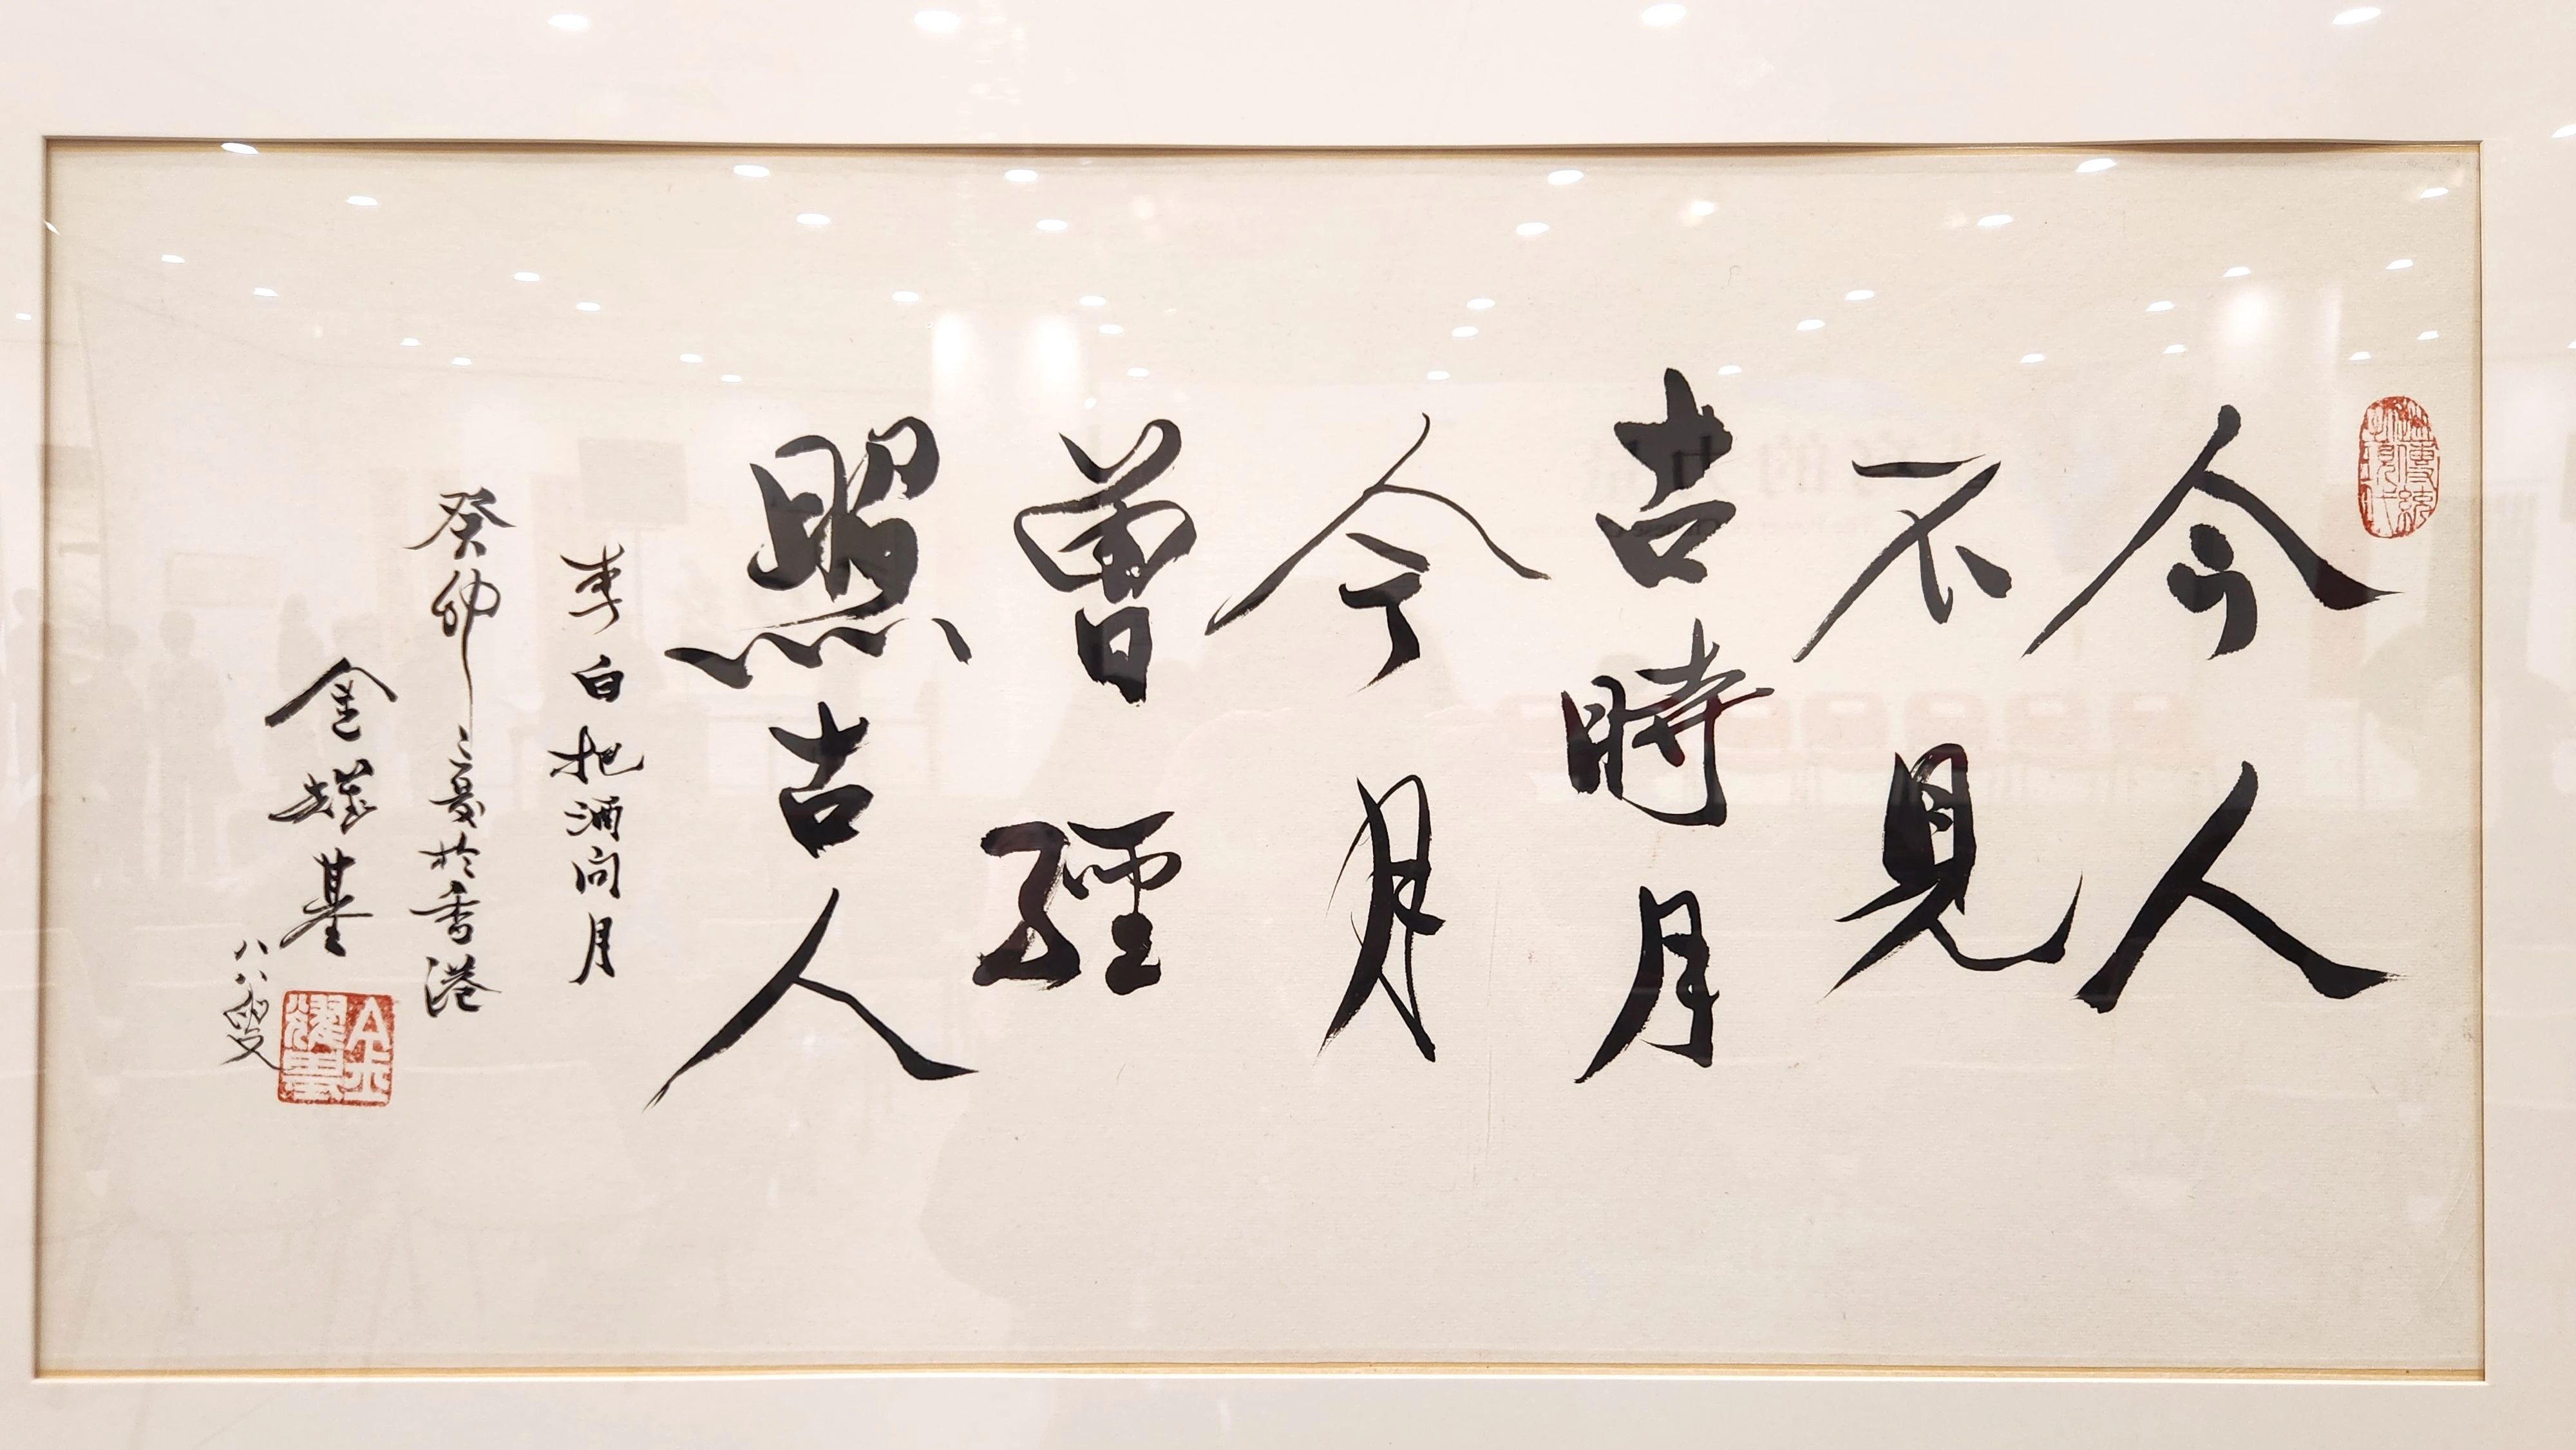 今人
不見
古時月
今月
曾經
照古人
李白把酒問月
癸卯之夏於香港
金耀基
八八叟
傳統
現代
金耀基